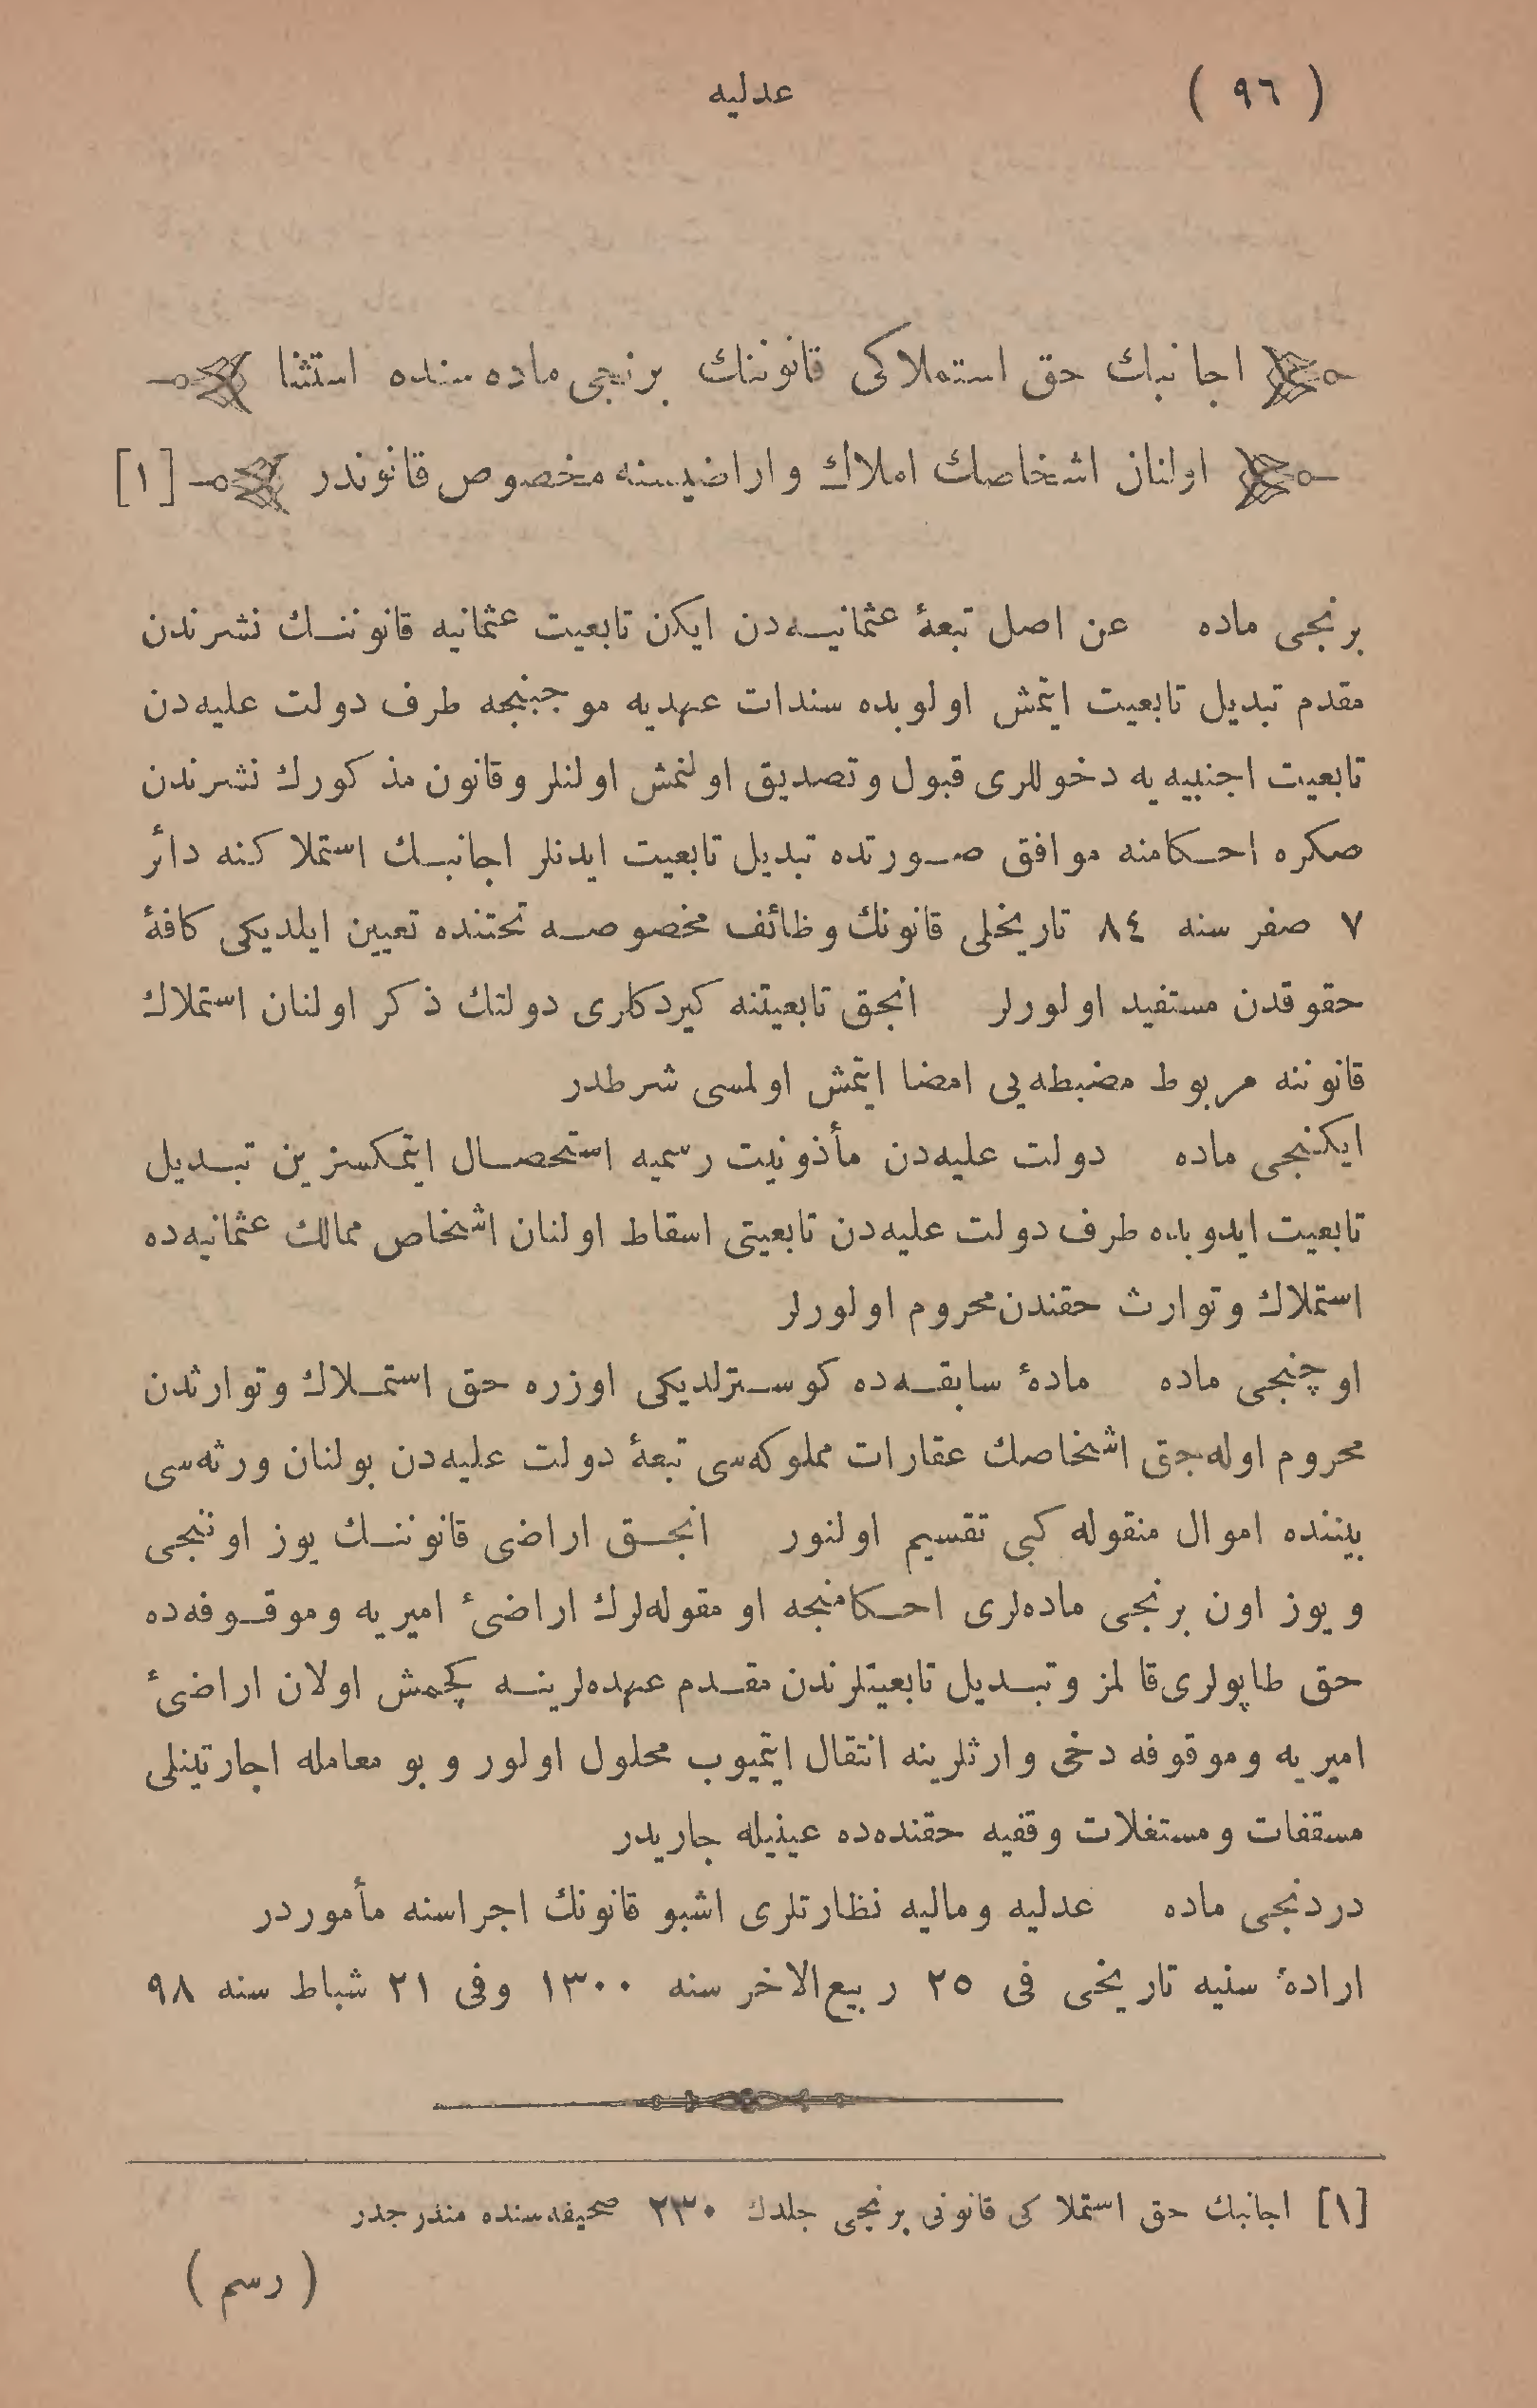 ( ٩٦ ) عدلیه
اجانبك حق استملاكى قانوننك برنجى ماده سنده استثنا
اولنان اشخاصك املاك واراضيسنه مخصوص قانوندر [١]
برنجى ماده عن اصل تبعۀ عثمانیه‌دن ایكن تابعیت عثمانیه قانوننك نشرندن
مقدم تبدیل تابعیت ایتمش اولوبده سندات عهدیه موجبنجه طرف دولت علیه‌دن
تابعیت اجنبیه‌یه دخوللرى قبول وتصدیق اولنمش اولنلر وقانون مذكورك نشرندن
صكره احكامنه موافق صورتده تبدیل تابعیت ایدنلر اجانبك استملاكنه دائر
٧ صفر سنه ٨٤ تاریخلى قانونك وظائف مخصوصه تحتنده تعیین ایلدیكى كافۀ
حقوقدن مستفید اولورلر انجق تابعیتنه كیردكلرى دولتك ذكر اولنان استملاك
قانوننه مربوط مضبطه‌یى امضا ایتمش اولمسى شرطدر
ایكنجى ماده دولت علیه‌دن مأذونیت رسمیه استحصال ایتمكسزین تبدیل
تابعیت ایدوبده طرف دولت علیه‌دن تابعیتى اسقاط اولنان اشخاص ممالك عثمانیه‌ده
استملاك وتوارث حقندن محروم اولورلر
اوچنجى ماده مادۀ سابقه‌ده كوسترلدیكى اوزره حق استملاك وتوارثدن
محروم اوله‌جق اشخاصك عقارات مملوكه‌سى تبعۀ دولت علیه‌دن بولنان ورثه‌سى
بیننده اموال منقوله كبى تقسیم اولنور انجق اراضى قانوننك یوز اوننجى
ویوز اون برنجى ماده‌لرى احكامنجه او مقوله‌لرك اراضىٔ امیریه وموقوفه‌ده
حق طاپولرى قالمز وتبدیل تابعیتلرندن مقدم عهده‌لرینه كچمش اولان اراضىٔ
امیریه وموقوفه دخى وارثلرینه انتقال ایتمیوب محلول اولور وبو معامله اجارتینلى
مسقفات ومستغلات وقفیه حقنده‌ده عینیله جاریدر
دردنجى ماده عدلیه ومالیه نظارتلرى اشبو قانونك اجراسنه مأموردر
ارادۀ سنیه تاریخى فى ٢٥ ربیع‌الاخر سنه ١٣٠٠ وفى ٢١ شباط سنه ٩٨
[١] اجانبك حق استملاكى قانونى برنجى جلدك ٢٣٠ صحیفه‌سنده مندرجدر
( رسم )